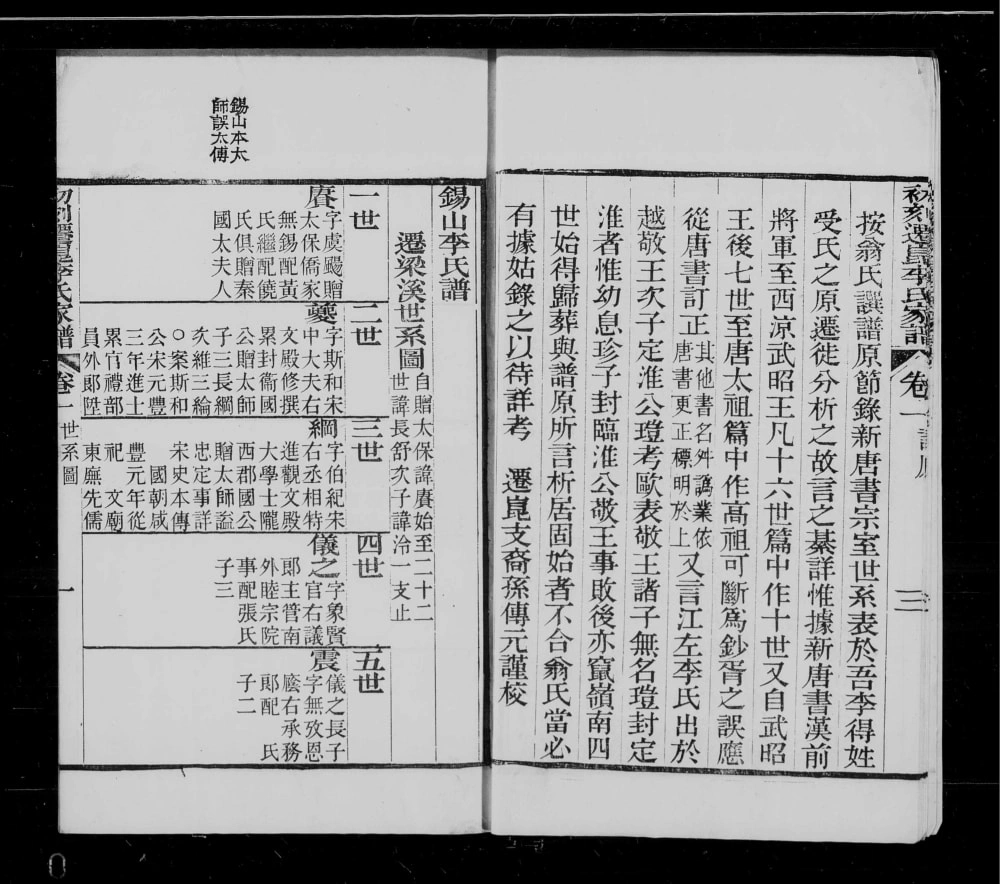 初刻遷崑李氏家譜
卷一
三
按翁氏譔譜原節錄新唐書宗室世系表於吾李得姓
受氏之原遷徙分析之故言之綦詳惟據新唐書漢前
將軍至西涼武昭王凡十六世篇中作十世又自武昭
王後七世至唐太祖篇中作高祖可斷爲鈔胥之誤應
從唐書訂正其他書名舛譌業依唐書更正標明於上又言江左李氏出於
越敬王次子定淮公璒考歐表敬王諸子無名璒封定
淮者惟幼息珍子封臨淮公敬王事敗後亦竄嶺南四
世始得歸葬與譜原所言析居固始者不合翁氏當必
有據姑錄之以待詳考 遷崑支裔孫傳元謹校
錫山本太
師誤太傅
錫山李氏譜
遷梁溪世系圖自贈太保諱賡始至二十二世諱長舒次子諱泠一支止
一世
賡字虞颺贈
太保僑家
無錫配黃
氏繼配饒
氏俱贈秦
國太夫人
二世
夔字斯和宋
中大夫右
文殿修撰
累封衞國
公贈太師
子三長綱
次維三綸
○案斯和
公宋元豐
三年進士
累官禮部
員外郞陞
三世
綱字伯紀宋
右丞相特
進觀文殿
大學士隴
西郡國公
贈太師謚
忠定事詳
宋史本傳
國朝咸
豐元年從
祀 文廟
東廡先儒
四世
儀之字象賢
官右議
郞主管南
外睦宗院
事配張氏
子三
五世
震儀之長子
字無攷恩
廕右承務
郞配 氏
子二
初刻遷崑李氏家譜
卷一世系圖
一